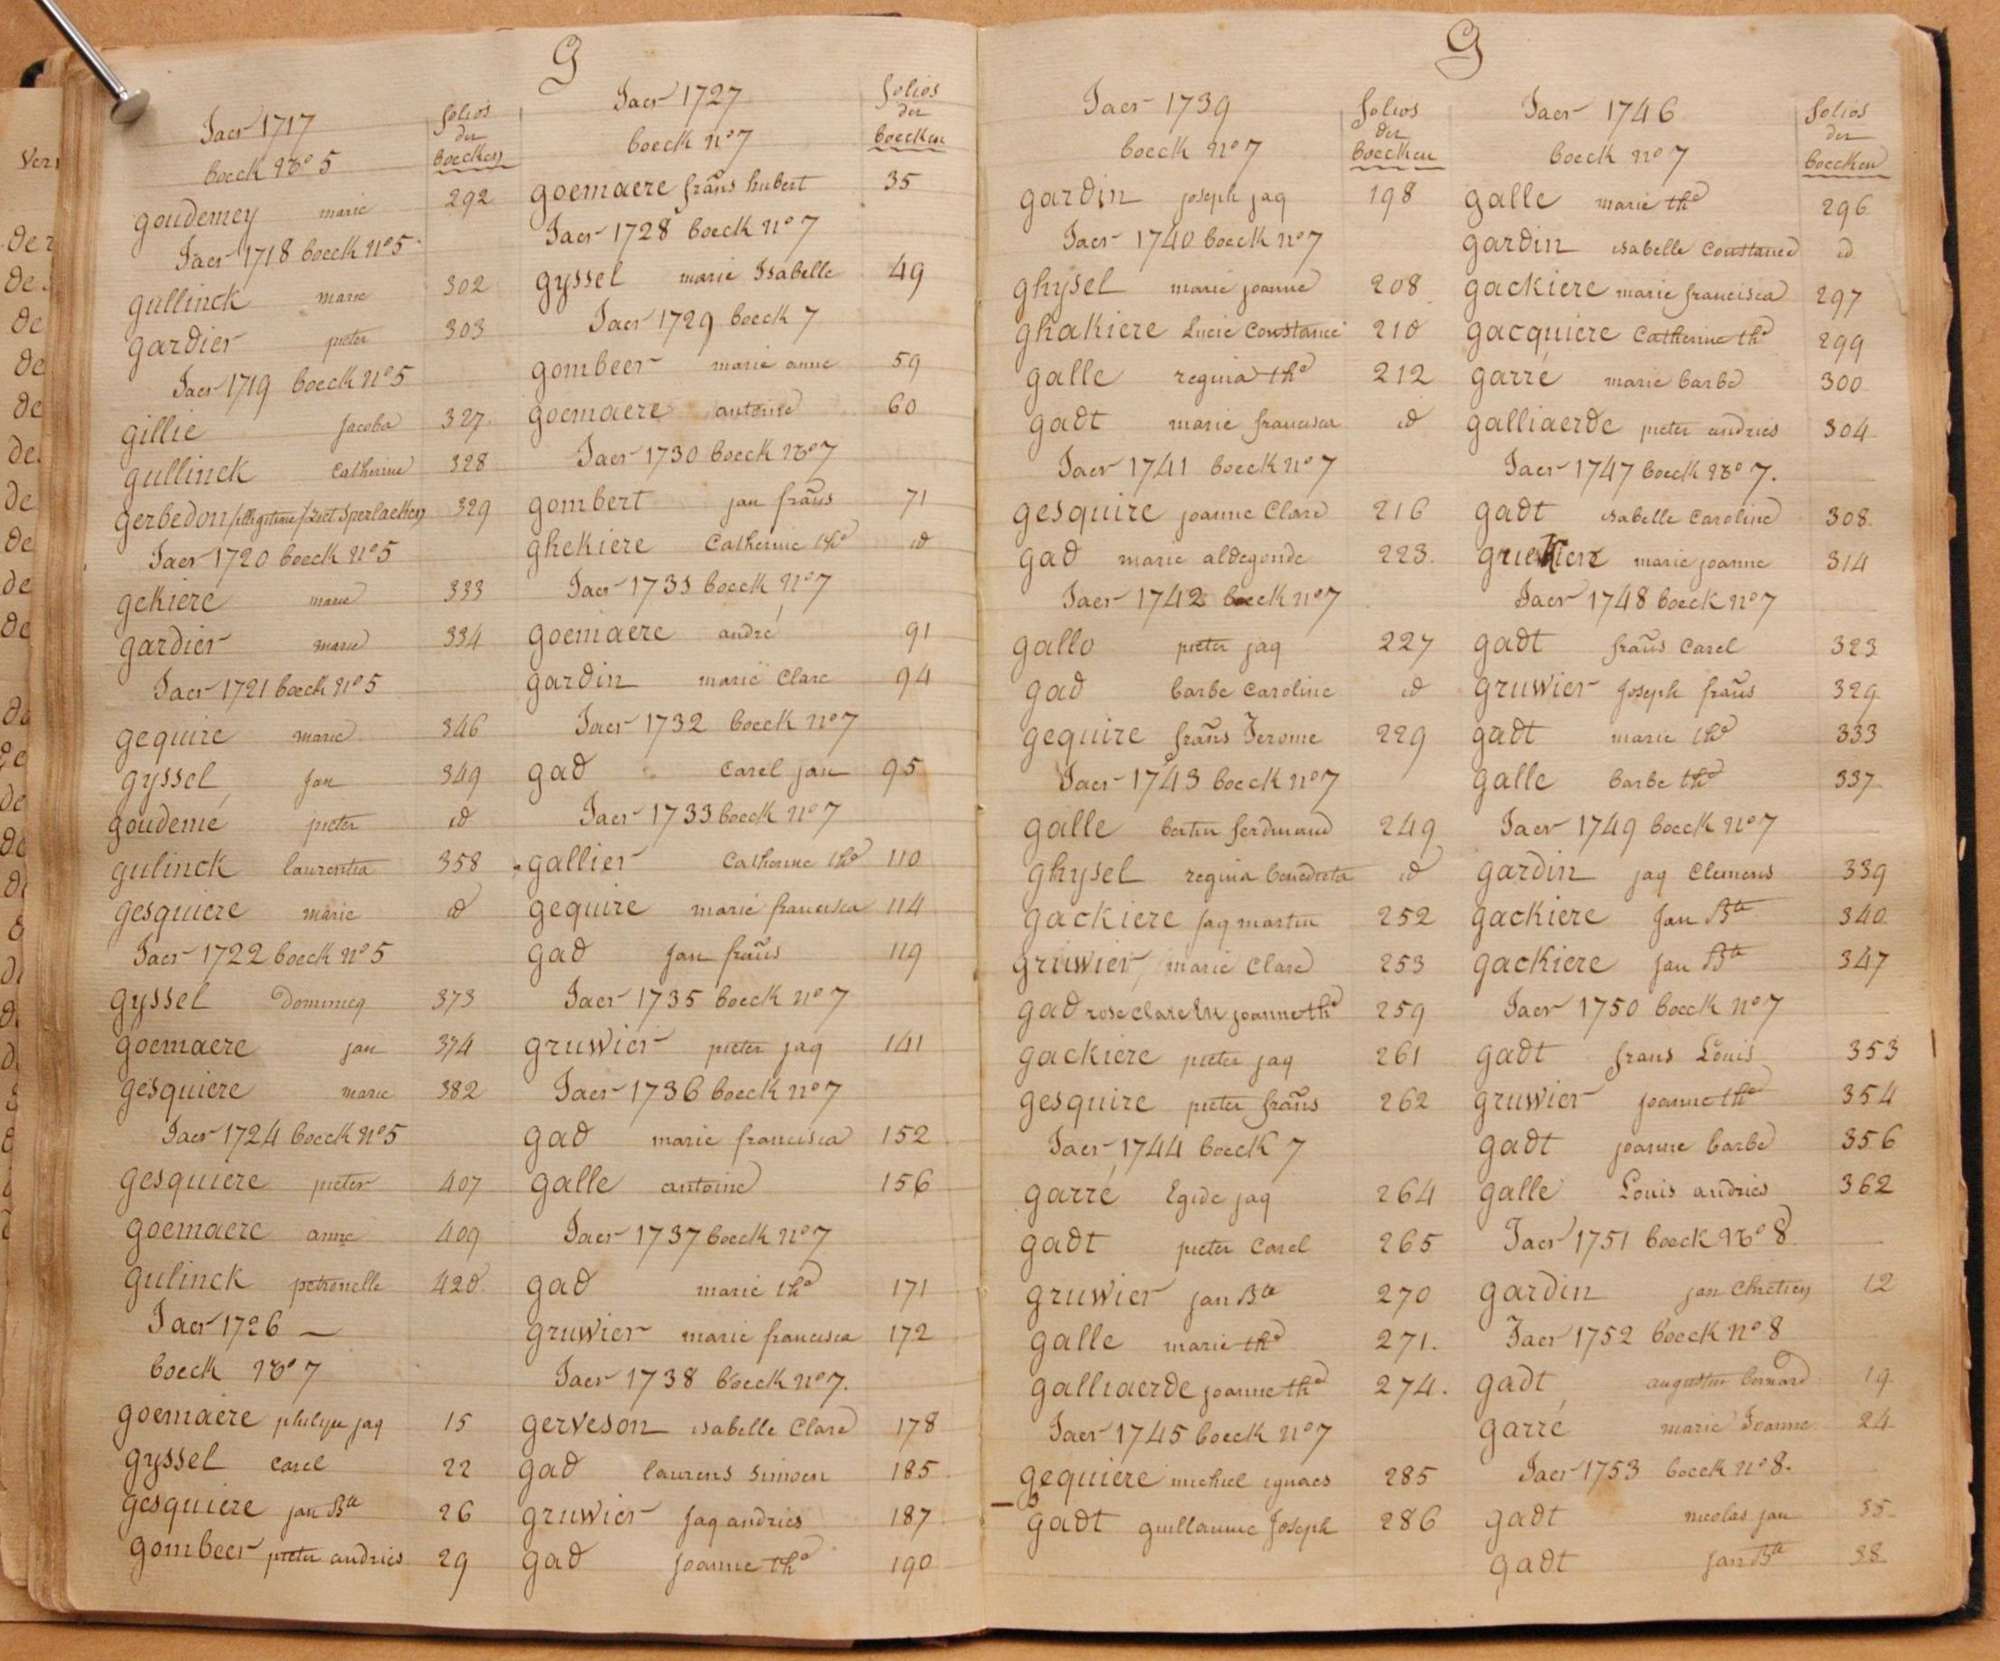 G
Jaer 1717
boeck No 5
folios
der
boecken
goudemey marie 292
Jaer 1718 boeck No 5
gullinck marie 302
gardier pieter 303
Jaer 1719 boeck No 5
gillie Jacoba 327
gullinck Catherine 328
gerbedon /illigitime/ Soet Sperlaecken 329
Jaer 1720 boeck No 5
gekiere marie 333
gardier marie 334
Jaer 1721 boeck No 5
gequire marie 346
gyssel Jan 349
goudemé pieter id
gulinck laurentia 358
gesquiere marie id
Jaer 1722 boeck No 5
gyssel Dominicq 373
goemaere jan 374
gesquiere marie 382
Jaer 1724 boeck No 5
gesquiere pieter 407
goemaere anne 409
gulinck petronelle 420
Jaer 1726 —
boeck No 7
goemaere philipe jaq 15
gyssel Carel 22
gesquiere jan Bte 26
gombeer pieter andries 29
Jaer 1727
boeck No 7
folios
der
boecken
goemaere frans hubert 35
Jaer 1728 boeck No 7
gyssel marie Isabelle 49
Jaer 1729 boeck 7
gombeer marie anne 59
goemaere antoine 60
Jaer 1730 boeck No 7
gombert jan frans 71
ghekiere Catherine the id
Jaer 1731 boeck No 7
goemaere andré 91
gardin marie Clare 94
Jaer 1732 boeck No 7
gad Carel jan 95
Jaer 1733 boeck No 7
gallier Catherine the 110
gequire marie francisca 114
gad Jan frans 119
Jaer 1735 boeck No 7
gruwier pieter jaq 141
Jaer 1736 boeck No 7
gad marie francisca 152
galle antoine 156
Jaer 1737 boeck No 7
gad marie the 171
gruwier marie francisca 172
Jaer 1738 boeck No 7.
gerveson isabelle Clare 178
gad laurens Simoen 185
gruwier Jaq andries 187
gad Joanne the 190
G
Jaer 1739
boeck No 7
folios
der
boecken
gardin joseph jaq 198
Jaer 1740 boeck No 7
ghysel marie joanne 208
ghakiere Lucie Constance 210
galle regina the 212
gadt marie francisca id
Jaer 1741 boeck No 7
gesquire joanne Clare 216
gad marie aldegonde 223.
Jaer 1742 boeck No 7
gallo pieter jaq 227
gad barbe Caroline id
gequire frans Jerome 229
Jaer 1743 boeck No 7
galle bertin ferdinand 249
ghysel regina benedicta id
gackiere Jaq martin 252
gruwier marie Clare 253
gad rose Clare joanne the 259
gackiere pieter jaq 261
gesquire pieter frans 262
Jaer 1744 boeck 7
garré Egide jaq 264
gadt pieter Carel 265
gruwier jan Bte 270
galle marie the 271.
galliaerde joanne the 274.
Jaer 1745 boeck No 7
gequiere michiel ignaes 285
gadt guillaume Joseph 286
Jaer 1746
boeck No 7
folios
der
boecken
galle marie the 296
gardin isabelle Constance id
gackiere marie francisca 297
gacquiere Catherine the 299
garré marie barbe 300
galliaerde pieter andries 304
Jaer 1747 boeck No 7.
gadt isabelle Caroline 308
marie joanne 314
Jaer 1748 boeck No 7
gadt frans Carel 323
gruwier Joseph frans 329
gadt marie the 333
galle barbe the 337
Jaer 1749 boeck No 7
gardin jaq Clemens 339
gackiere Jan Bte 340
gackiere Jan Bte 347
Jaer 1750 boeck No 7
gadt frans Louis 353
gruwier joanne the 354
gadt joanne barbe 356
galle Louis andries 362
Jaer 1751 boeck No 8
gardin jan Chretien 12
Jaer 1752 boeck No 8
gadt augustin bernard 19
garré marie Joanne 24
Jaer 1753 boeck No 8.
gadt nicolas jan 35
gadt jan Bte 38